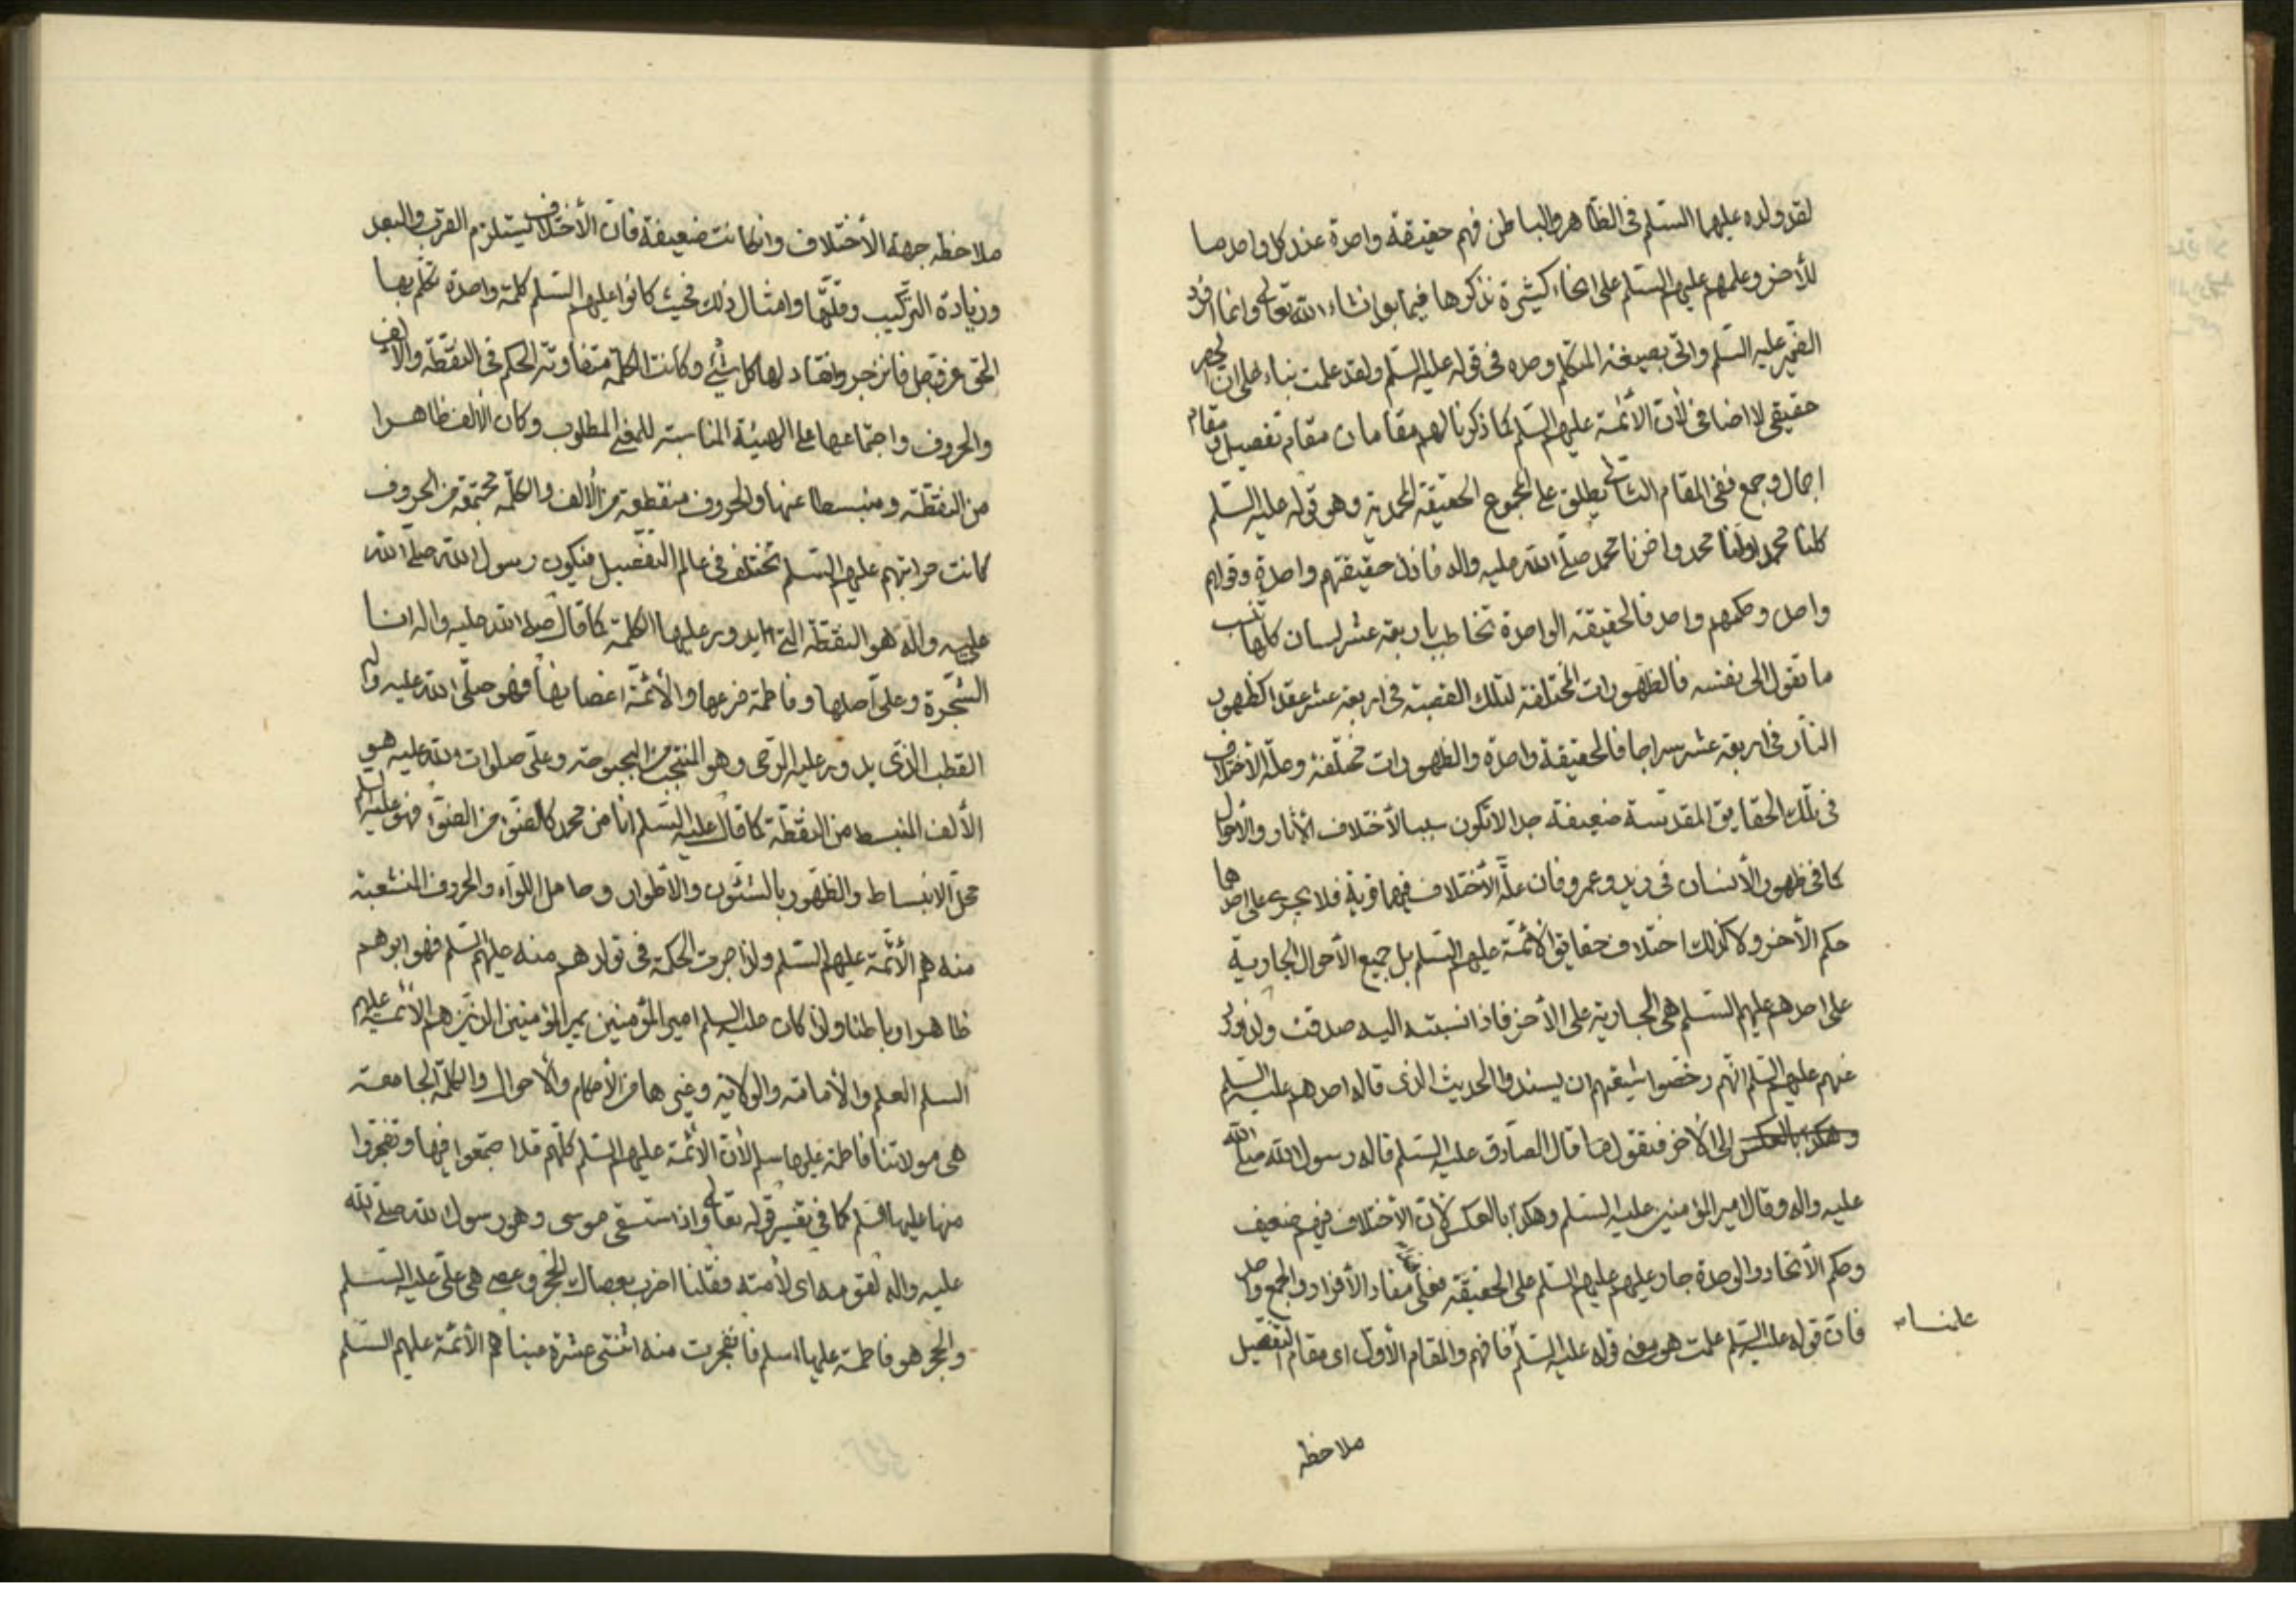 لقد ولده عليهما السّلم فى الظّاهر والباطن فهم حقيقة واحدة عند كل واحد ما
للأخر وعلمهم عليهم السّلم على انحاء كثيرة نذكرها فيما بعد انشاء الله تعالى وانما افرد
الضمير عليه السّلم واتى بصيغة المتكلم وحده فى قوله عليه السّلم ولقد علمت بناء على ان الحصر
حقيقى لا اضافى لأن الأئمّة عليهم السّلم كما ذكرنا لهم مقامان مقام تفصيل ومقام
اجمال وجمع ففى المقام الثانى يطلق على المجموع الحقيقة المحمدية وهو قوله عليه السّلم
كلنا محمد اولنا محمد واخرنا محمد صلّى الله عليه واله فاذن حقيقتهم واحدة وقولهم
واحد وحكمهم واحد فالحقيقة الواحدة تخاطب باربعة عشر لسان كلها تنسب
ما تقول الى نفسه فالظهورات المختلفة لتلك القصبة فى اربعة عشر عقدا كظهور
النّار فى اربعة عشر سراجا فالحقيقة واحدة والظهورات مختلفة وعلّة الاختلاف
فى تلك الحقايق المقدّسة ضعيفة جدا لا تكون سببا لأختلاف الأثار والأحوال
كما فى ظهور الأنسان فى زيد وعمرو فان علّة الأختلاف فيهما قوية فلا يجرى على احدهما
حكم الأخر ولا كذلك اختلاف حقايق الأئمّة عليهم السّلم بل جميع الأحوال الجارية
على احدهم عليهم السّلم هى الجارية على الأخر فاذا نسبته اليه صدقت ولذا ورد
عنهم عليهم السّلم انّهم رخّصوا شيعتهم ان يسندوا الحديث الذى قاله احدهم عليه السّلم
وهكذا بالعكس الى الأخر فتقول لما قال الصّادق عليه السّلم قاله رسول الله صلى الله
عليه واله وقال امير المؤمنين عليه السّلم وهكذا بالعكس لأن الأختلاف فيهم ضعيف
وحكم الأتحاد والوحدة جار عليهم عليهم السّلم على الحقيقة فعلى مفاد الأفراد والجمع واحد
فان قوله عليه السّلم علمت هو معنى قوله عليه السّلم فافهم والمقام الأوّل اى مقام التفصيل
علمنا
ملاحظه
ملاحظه جهة الأختلاف وان كانت ضعيفة فان الأختلاف يستلزم القرب والبعد
وزيادة التركيب وقلّتها وامثال ذلك فحيث كانوا عليهم السّلم كلمة واحدة تكلّم بها
الحق عز وجل فانزجر وانقاد لها كل شئ وكانت الكلمة متفاوتة الحكم فى النقطة والألف
والحروف واجتماعها على الهيئة المناسبة للمعنى المطلوب وكان الألف ظاهرا
من النقطة ومنبسطا عنها والحروف منقطعة من الألف والكلمة مجتمعة من الحروف
كانت مراتبهم عليهم السّلم تختلف فى عالم التفصيل فيكون رسول الله صلّى الله
عليه واله هو النقطة التى يدور عليها الكلمة كما قال صلى الله عليه واله انا
الشّجرة وعلى اصلها وفاطمة فرعها والأئمّة اغصانها فهو صلّى الله عليه واله
القطب الذى يدور عليه الرّحى وهو المنتجب من البحبوحة وعلى صلوات الله عليه هو
الألف المنبسط من النقطة كما قال عليه السّلم انا من محمد كالضّوء من الضّوء فهو عليه السلم
محل الانبساط والظّهور بالشئون والأطوار وحامل اللواء والحروف المنشعبة
منه هم الأئمّة عليهم السّلم ولذا جرت الحكمة فى تولدهم منه عليهم السّلم فهو ابوهم
ظاهرا وباطنا ولذا كان عليه السلم امير المؤمنين يمير المؤمنين الذين هم الأئمّة عليهم
السلم العلم والأمامة والولاية وغيرها من الأحكام والأحوال والكلمة الجامعة
هى مولاتنا فاطمة عليها سلم لأن الأئمّة عليهم السّلم كلّهم قد اجتمعوا فيها وتفجّروا
منها عليها السّلم كما فى تفسير قوله تعالى واذ استسقى موسى وهو رسول الله صلى الله
عليه واله لقومه اى لأمته فقلنا اضرب بعصاك الحجر وعصى هى علىّ عليه السّلم
والحجر هو فاطمة عليها السلم فانفجرت منه اثنتى عشرة عينا هم الأئمّة عليهم السّلم